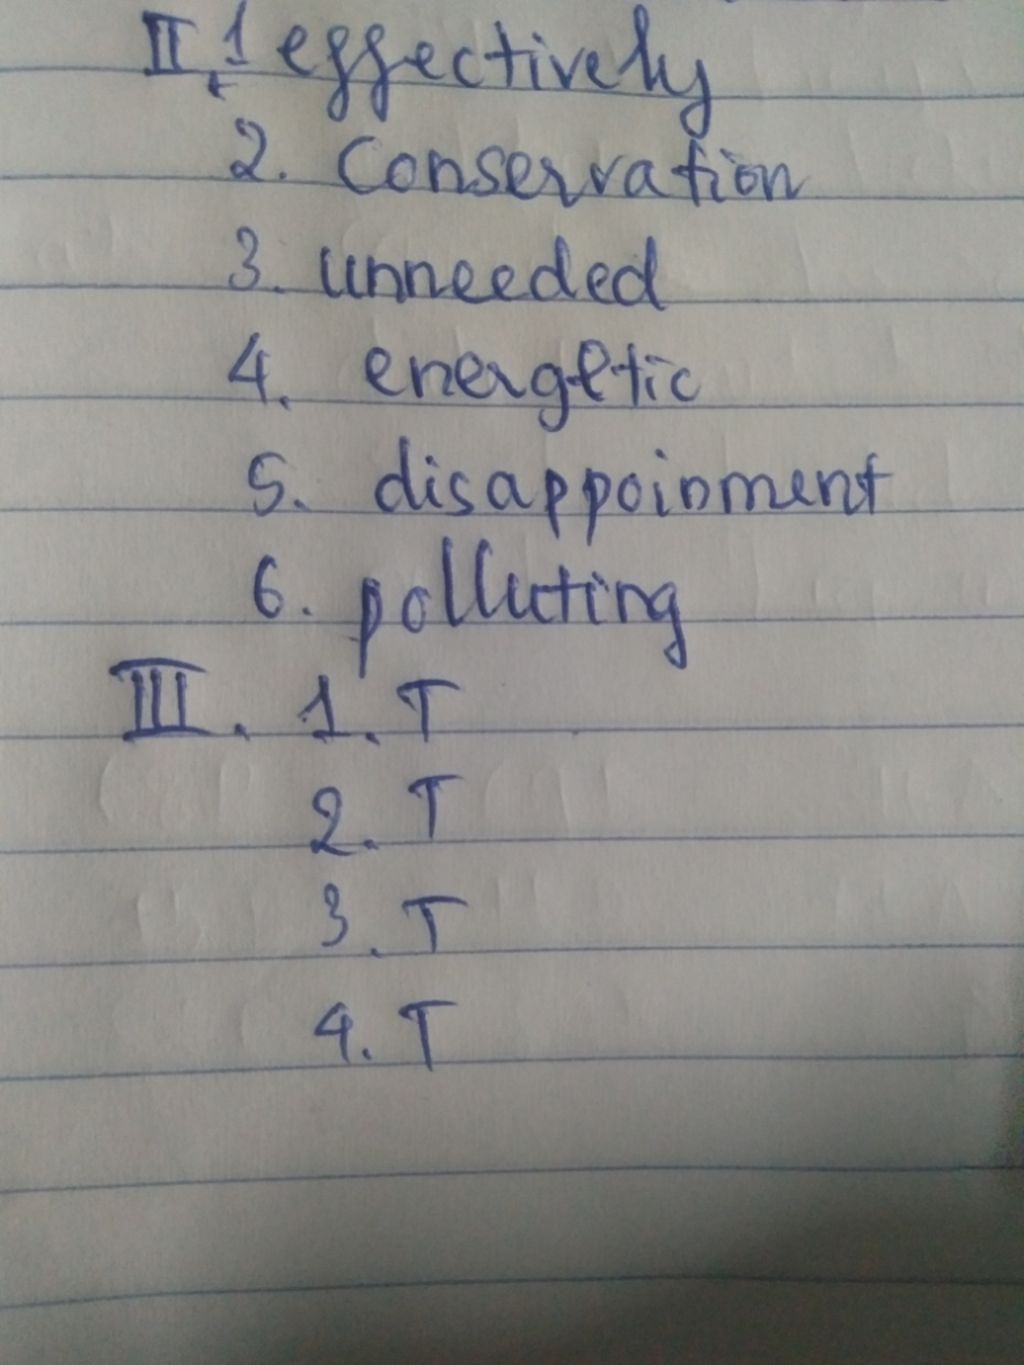 II. 1 effectively
2. Conservation
3. unneeded
4. energetic
5. disappoinment
6. polluting
III. 1. T
2. T
3. T
4. T